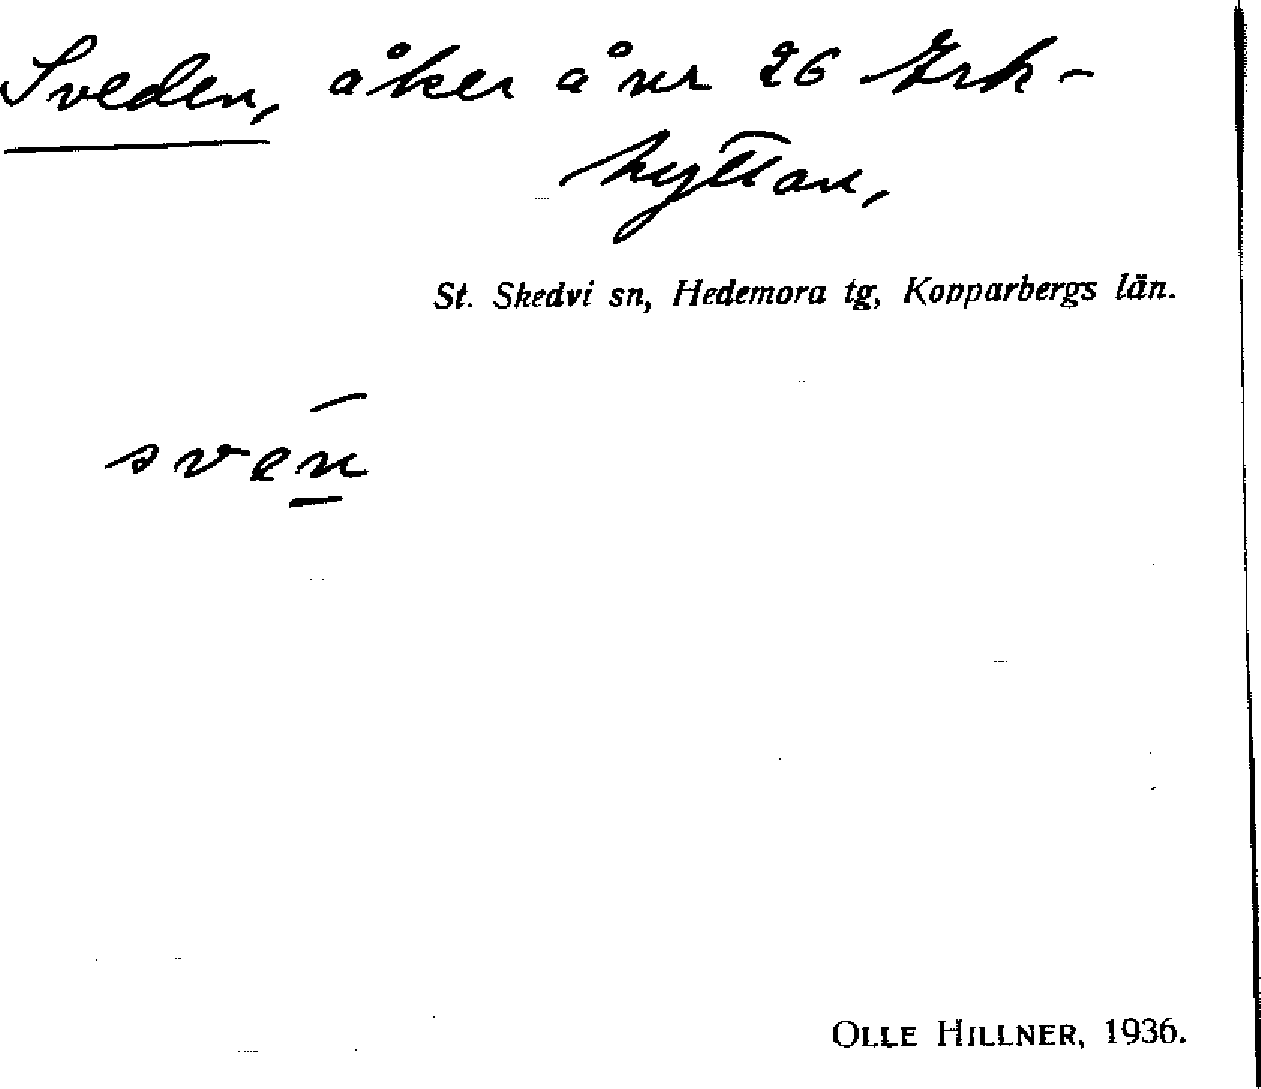 Sveden, åker å nr 26 Erk-
hyttan,
St. Skedvi sn, Hedemora tg, Kopparbergs län.
sven
OLLE HILLNER, 1936.